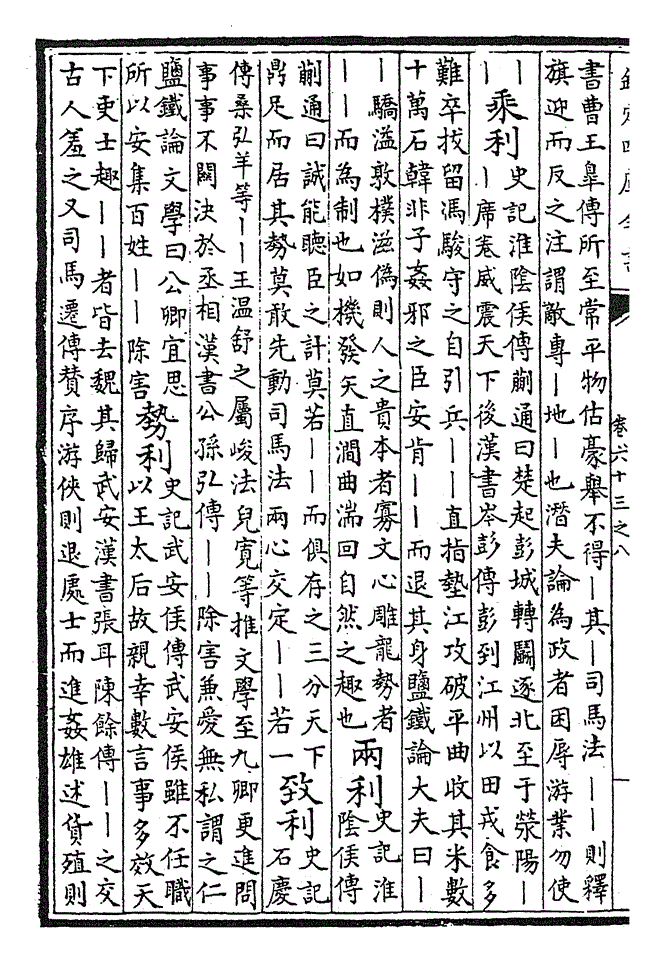 欽定四庫全書
卷六十三之八
書曹王臯傳所至常平物估豪舉不得丨其丨司馬法丨丨則釋
旗迎而反之注謂敵專丨地丨也潛夫論為政者困辱游業勿使
丨丨
乘利
史記淮陰侯傳蒯通曰楚起彭城轉鬭逐北至于滎陽丨
丨席卷威震天下後漢書岑彭傳彭到江州以田戎食多
難卒拔留馮駿守之自引兵丨丨直指墊江攻破平曲收其米數
十萬石韓非子姦邪之臣安肯丨丨而退其身鹽鐵論大夫曰丨
丨驕溢敦樸滋偽則人之貴本者寡文心雕龍勢者
丨丨而為制也如機發矢直澗曲湍回自然之趣也
兩利
史記淮
陰侯傳
蒯通曰誠能聽臣之計莫若丨丨而俱存之三分天下
鼎足而居其勢莫敢先動司馬法兩心交定丨丨若一
致利
史記
石慶
傳桑弘羊等丨丨王温舒之屬峻法兒寬等推文學至九卿更進問
事事不關決於丞相漢書公孫弘傳丨丨除害兼愛無私謂之仁
鹽鐵論文學曰公卿宜思
所以安集百姓丨丨除害
勢利
史記武安侯傳武安侯雖不任職
以王太后故親幸數言事多效天
下吏士趣丨丨者皆去魏其歸武安漢書張耳陳餘傳丨丨之交
古人羞之又司馬遷傳贊序游俠則退處士而進姦雄述貨殖則